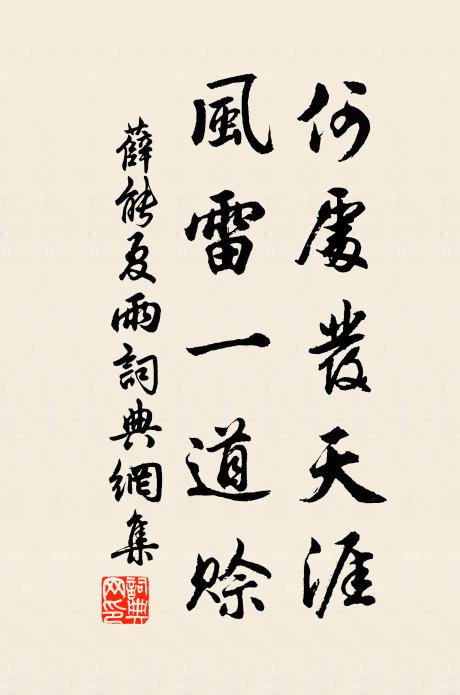 何處發天涯
風雷一道賒
薛能夏雨詞典網集
詞典
网印